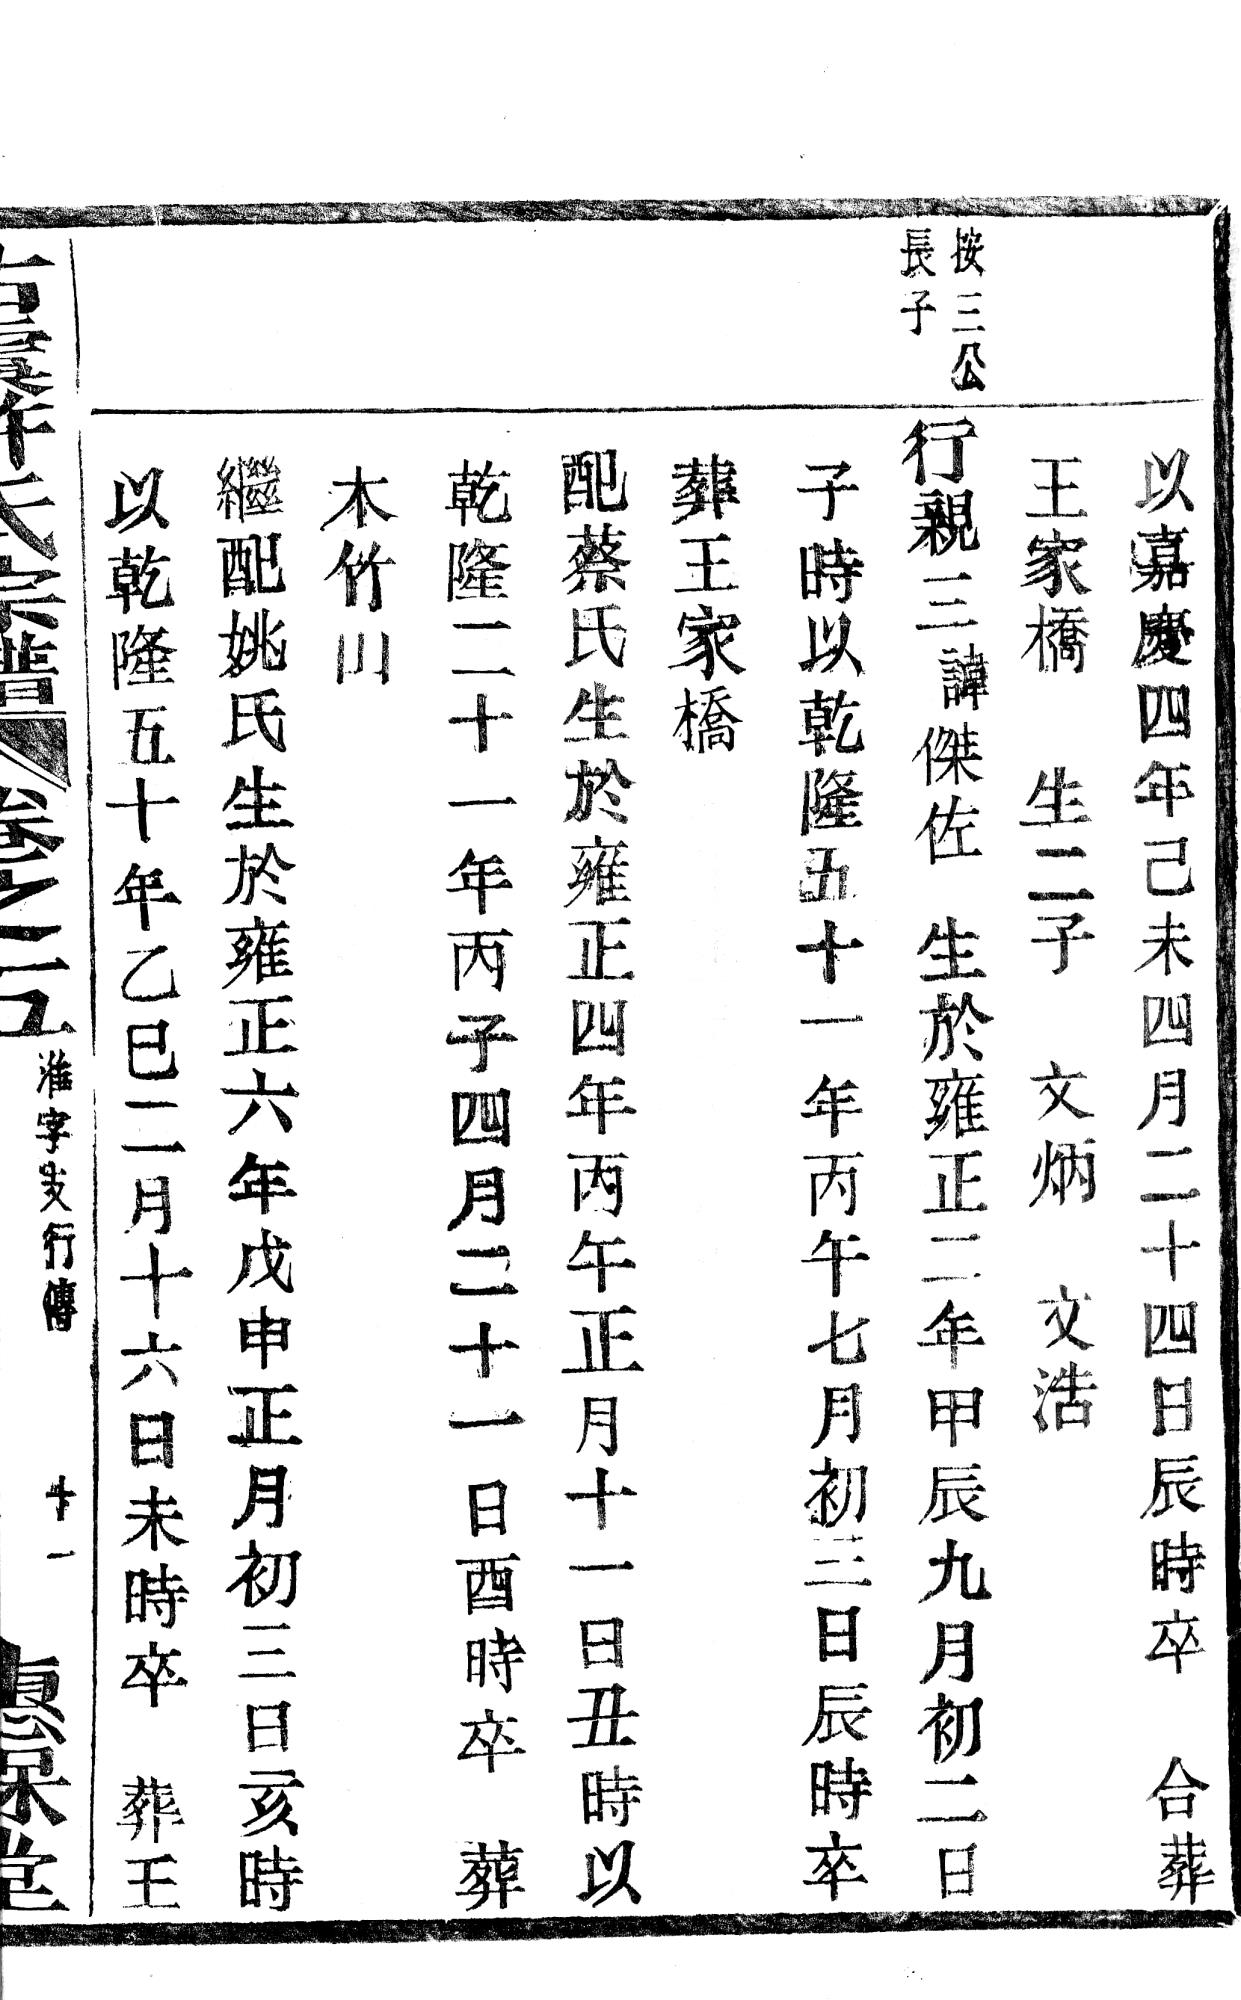 以嘉慶四年己未四月二十四日辰時卒 合葬
王家橋 生二子 文炳 文浩
按三公
長子
行親三諱傑佐 生於雍正二年甲辰九月初二日
子時以乾隆五十一年丙午七月初三日辰時卒
葬王家橋
配蔡氏生於雍正四年丙午正月十一日丑時以
乾隆二十一年丙子四月二十一日酉時卒 葬
木竹山
繼配姚氏生於雍正六年戊申正月初三日亥時
以乾隆五十年乙巳二月十六日未時卒 葬王
古虞許氏宗譜 卷之二 淮字支行傳 十一 惠保堂